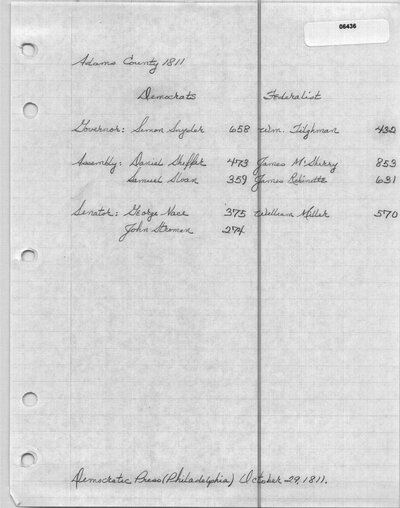 06436
Adams County 1811
Democrats Federalist
Governor: Simon Snyder 658 Wm. Tilghman 432
Assembly: Daniel Sheffer 473 James McSherry 853
Samuel Sloan 359 James Robinette 631
Senator: George Nace 375 William Miller 570
John Stroman 274
Democratic Press (Philadelphia) October 29, 1811.